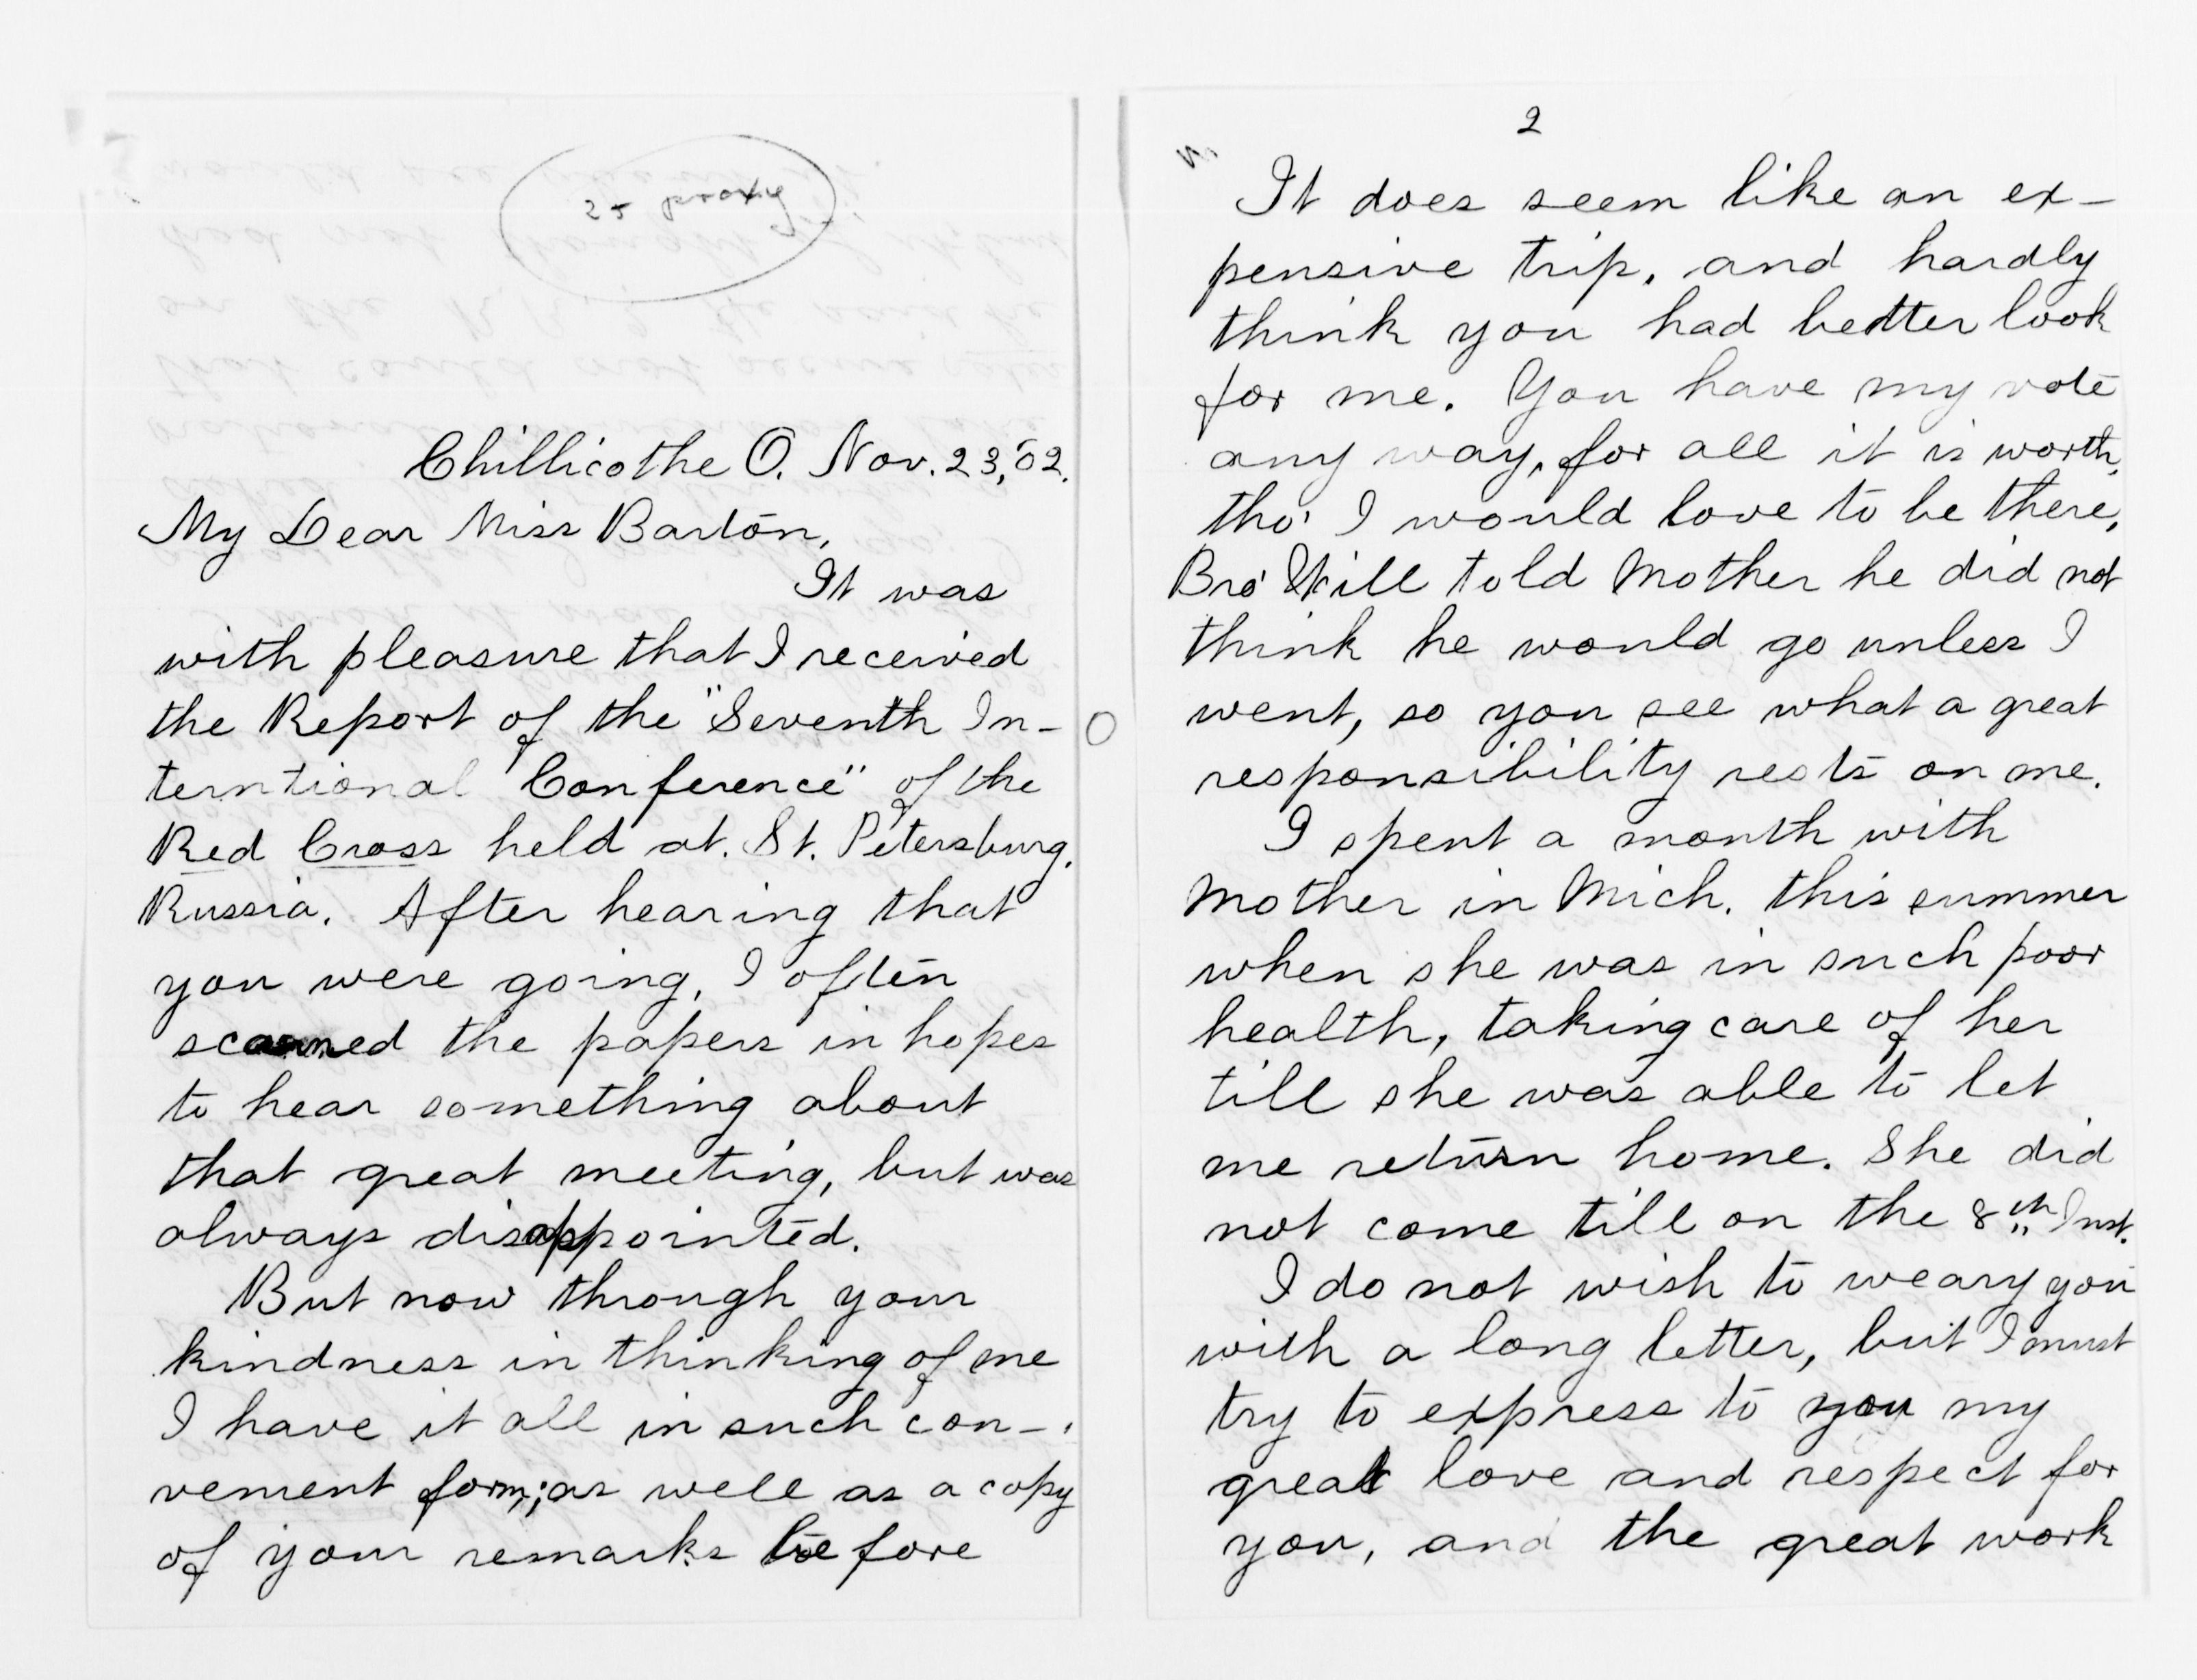 25 proxy
Chillicothe O. Nov. 23, '02.
My Dear Miss Barton,
It was
with pleasure that I received
the Report of the "Seventh In-
terntional Conference" of the
Red Cross held at. St. Petersburg.
Russia. After hearing that
you were going, I often
scanned the papers in hopes
to hear something about
that great meeting, but was
always disappointed.
But now through your
kindness in thinking of me
I have it all in such con-
venient form; as well as a copy
of your remarks before
2
It does seem like an ex-
pensive trip, and hardly
think you had better look
for me. You have my vote
any way, for all it is worth,
tho' I would love to be there,
Bro' Will told Mother he did not
think he would go unless I
went, so you see what a great
responsibility rests on me.
I spent a month with
Mother in Mich. this summer
when she was in such poor
health, taking care of her
till she was able to let
me return home. She did
not come till on the 8th Inst.
I do not wish to weary you
with a long letter, but I must
try to express to you my
great love and respect for
you, and the great work